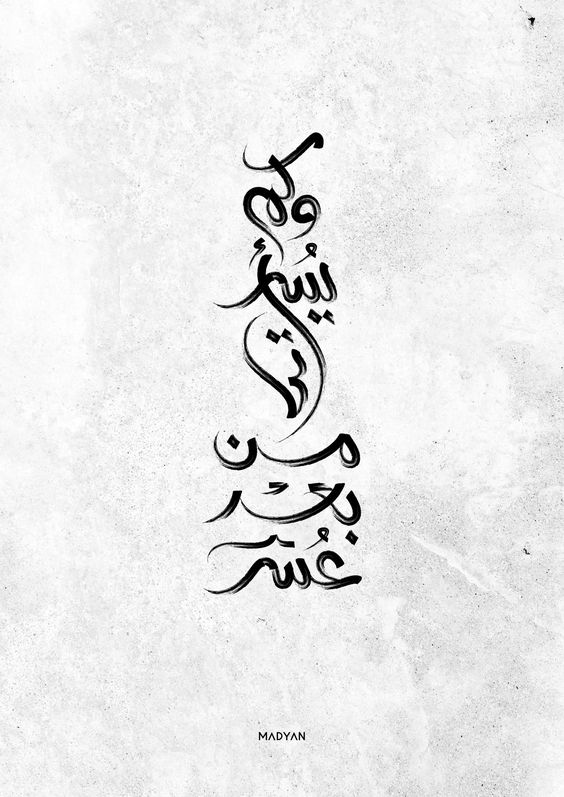 وكم
يُسر
أتى
من
بعد
عُسر
MADYAN